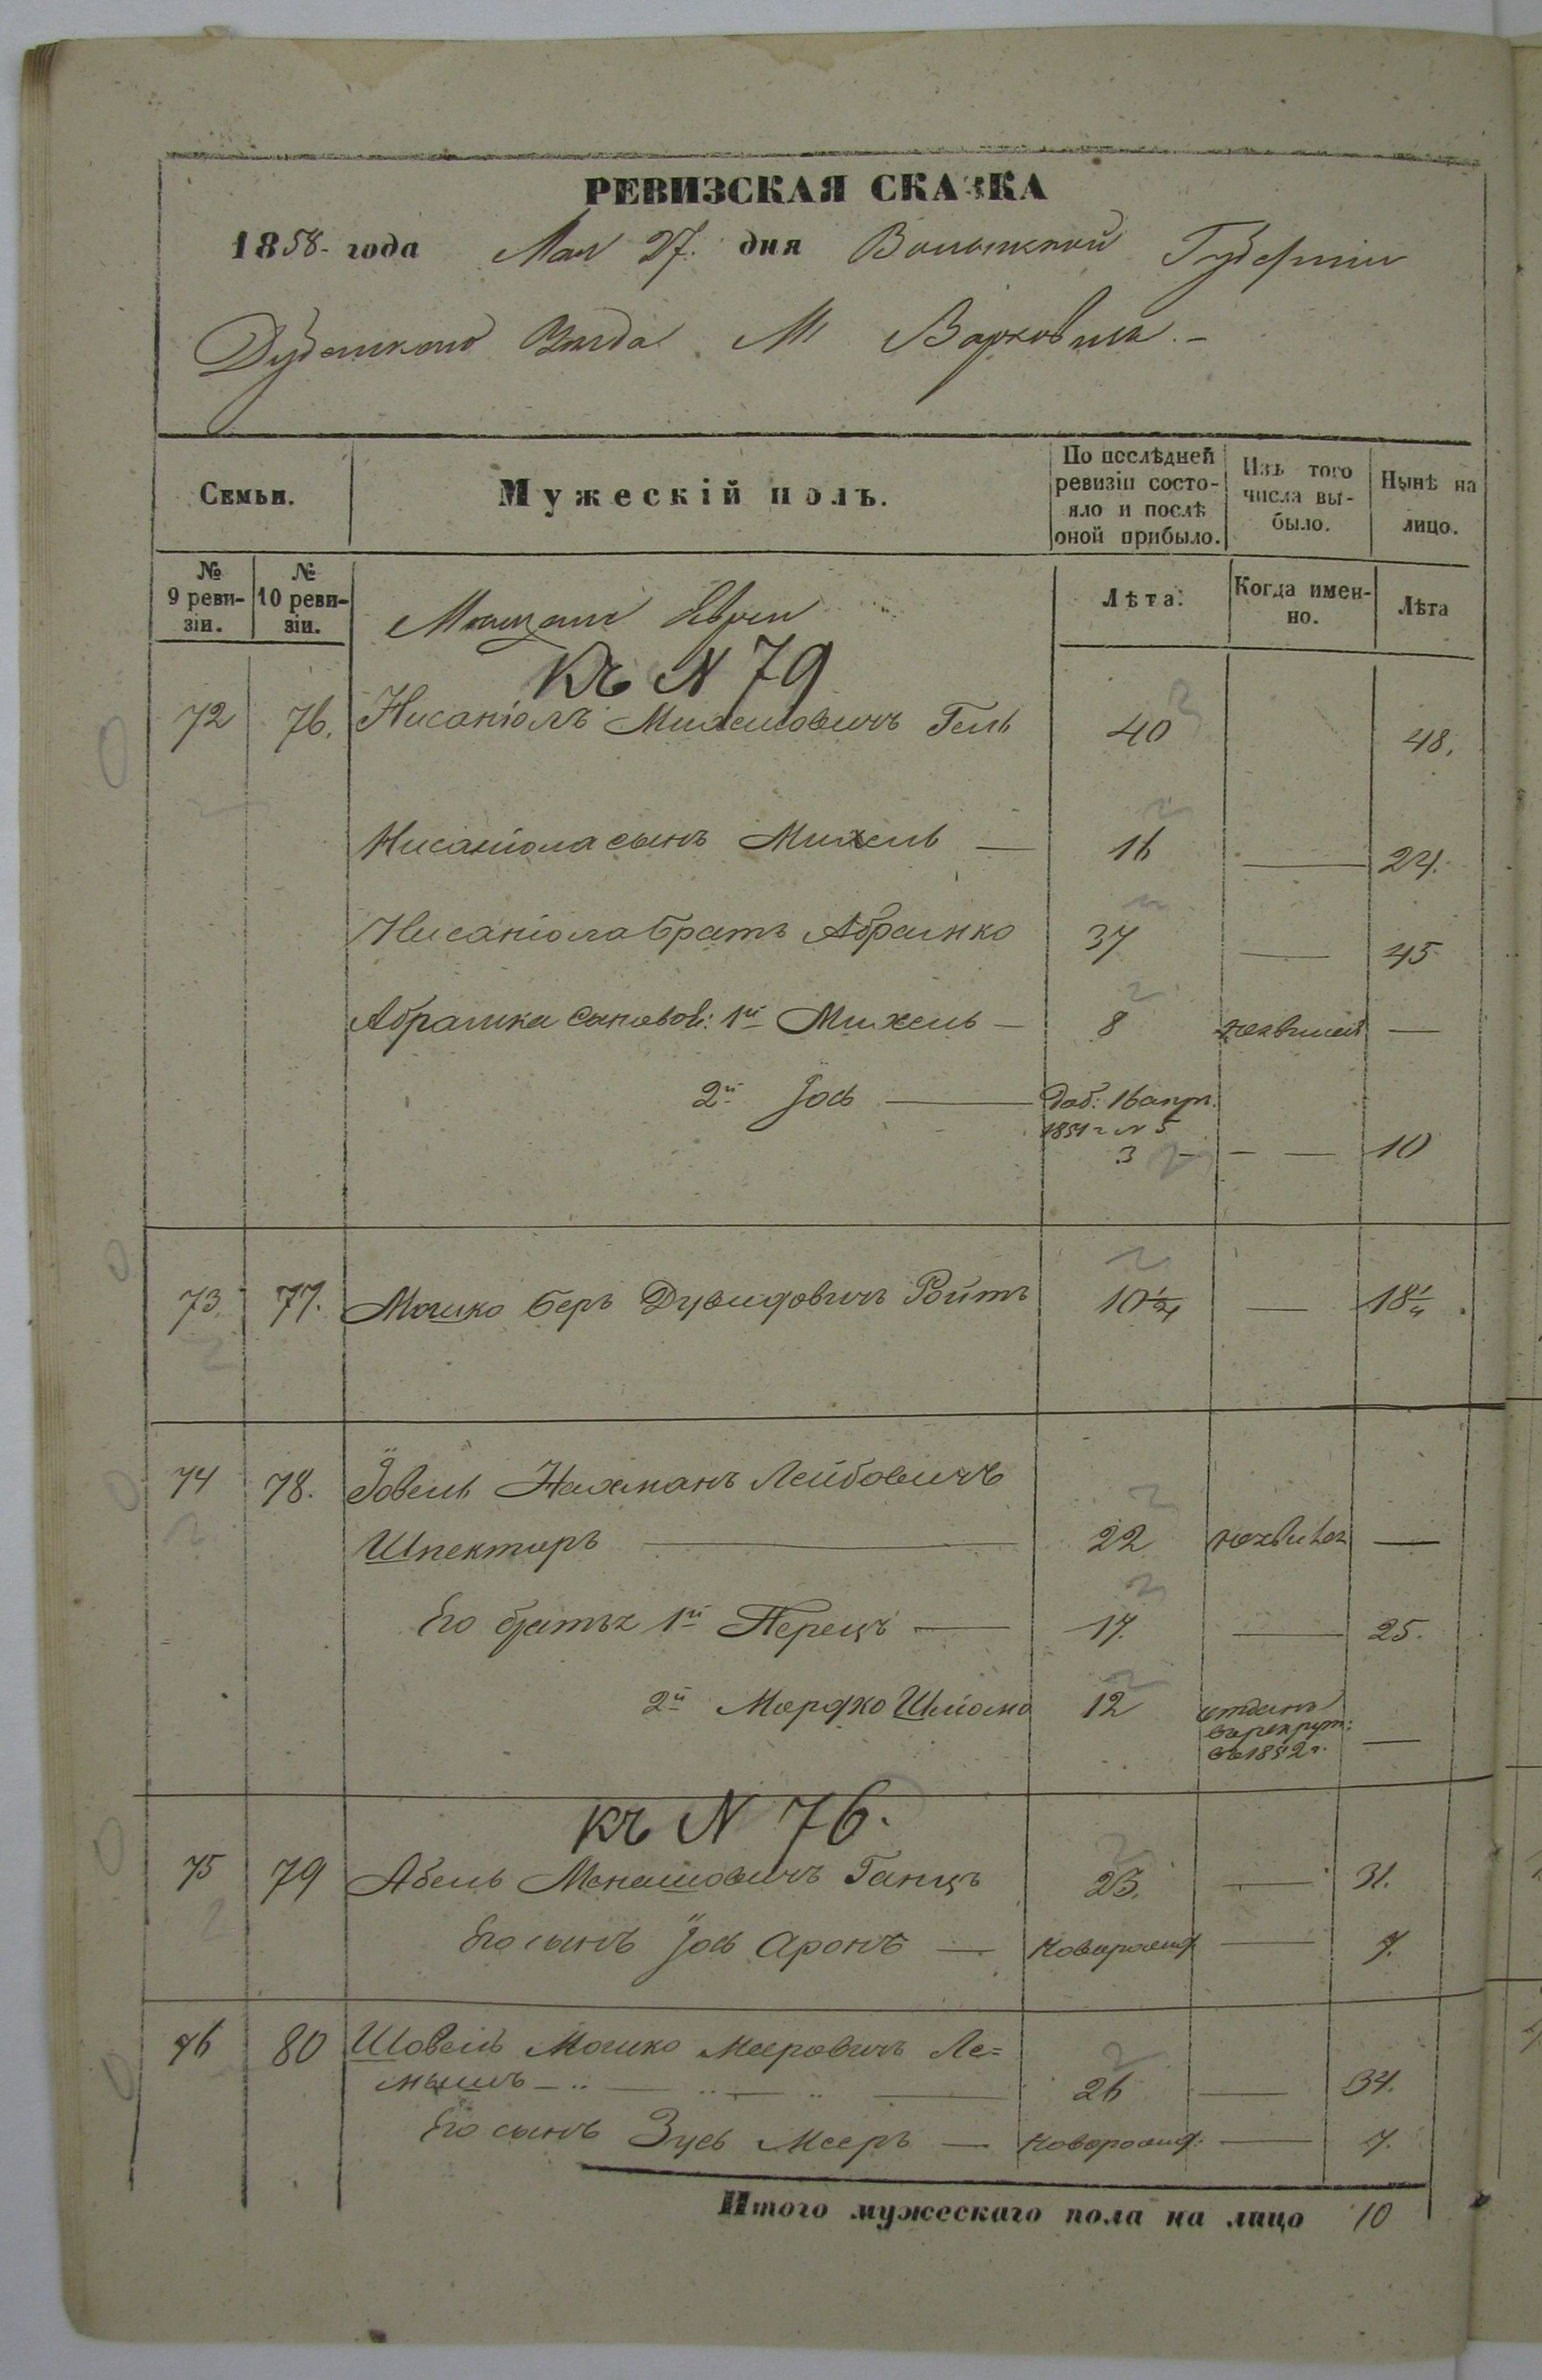 РЕВИЗСКАЯ СКАЗКА
1858 года Мая 27. дня Волынской Губерніи
Дубенскаго Уѣзда М Варковичь. –
Семьи.
Мужескій полъ.
По послѣдней ревизіи состояло и послѣ оной прибыло.
Изъ того числа выбыло.
Нынѣ на лицо.
№ 9 ревизіи.
№ 10 ревизіи.
Мѣщане Евреи
Лѣта.
Когда именно.
Лѣта
Къ N 79
72 76. Нисаніолъ Михелевичъ Гель 40 48.
Нисаніола сынъ Михель — 16 — 24.
Нисаніола братъ Абрамко 37 — 45
Абрамка сыновья: 1й Михель — 8 неявился —
2й Іось — доб: 16 апрѣ.
1851 г N 5
3 — — 10
73. 77. Мошко Беръ Дувидовичъ Ройтъ 10 1/4 — 18 1/4.
74 78. Іовель Нахманъ Лейбовичъ
Шпекторъ — 22 неявился —
Его братья 1й Перецъ — 17. — 25.
2й Мордко Шліома 12 отданъ
въ рекрут:
въ 1852 г. —
къ N 76.
75 79 Абель Менашовичъ Ганцъ 23. — 31.
Его сынъ Іось Аронъ — новорожд — 7.
76 80 Шовель Мошко Мееровичъ Ле=
мышъ — 26 — 34.
Его сынъ Зусь Мееръ — новорожд: — 7.
Итого мужескаго пола на лицо 10